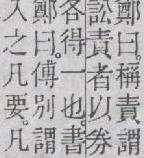 鄭曰。稱責、謂
訟責者以券
各得一也。書
鄭曰。傅別謂
入之凡要。凡